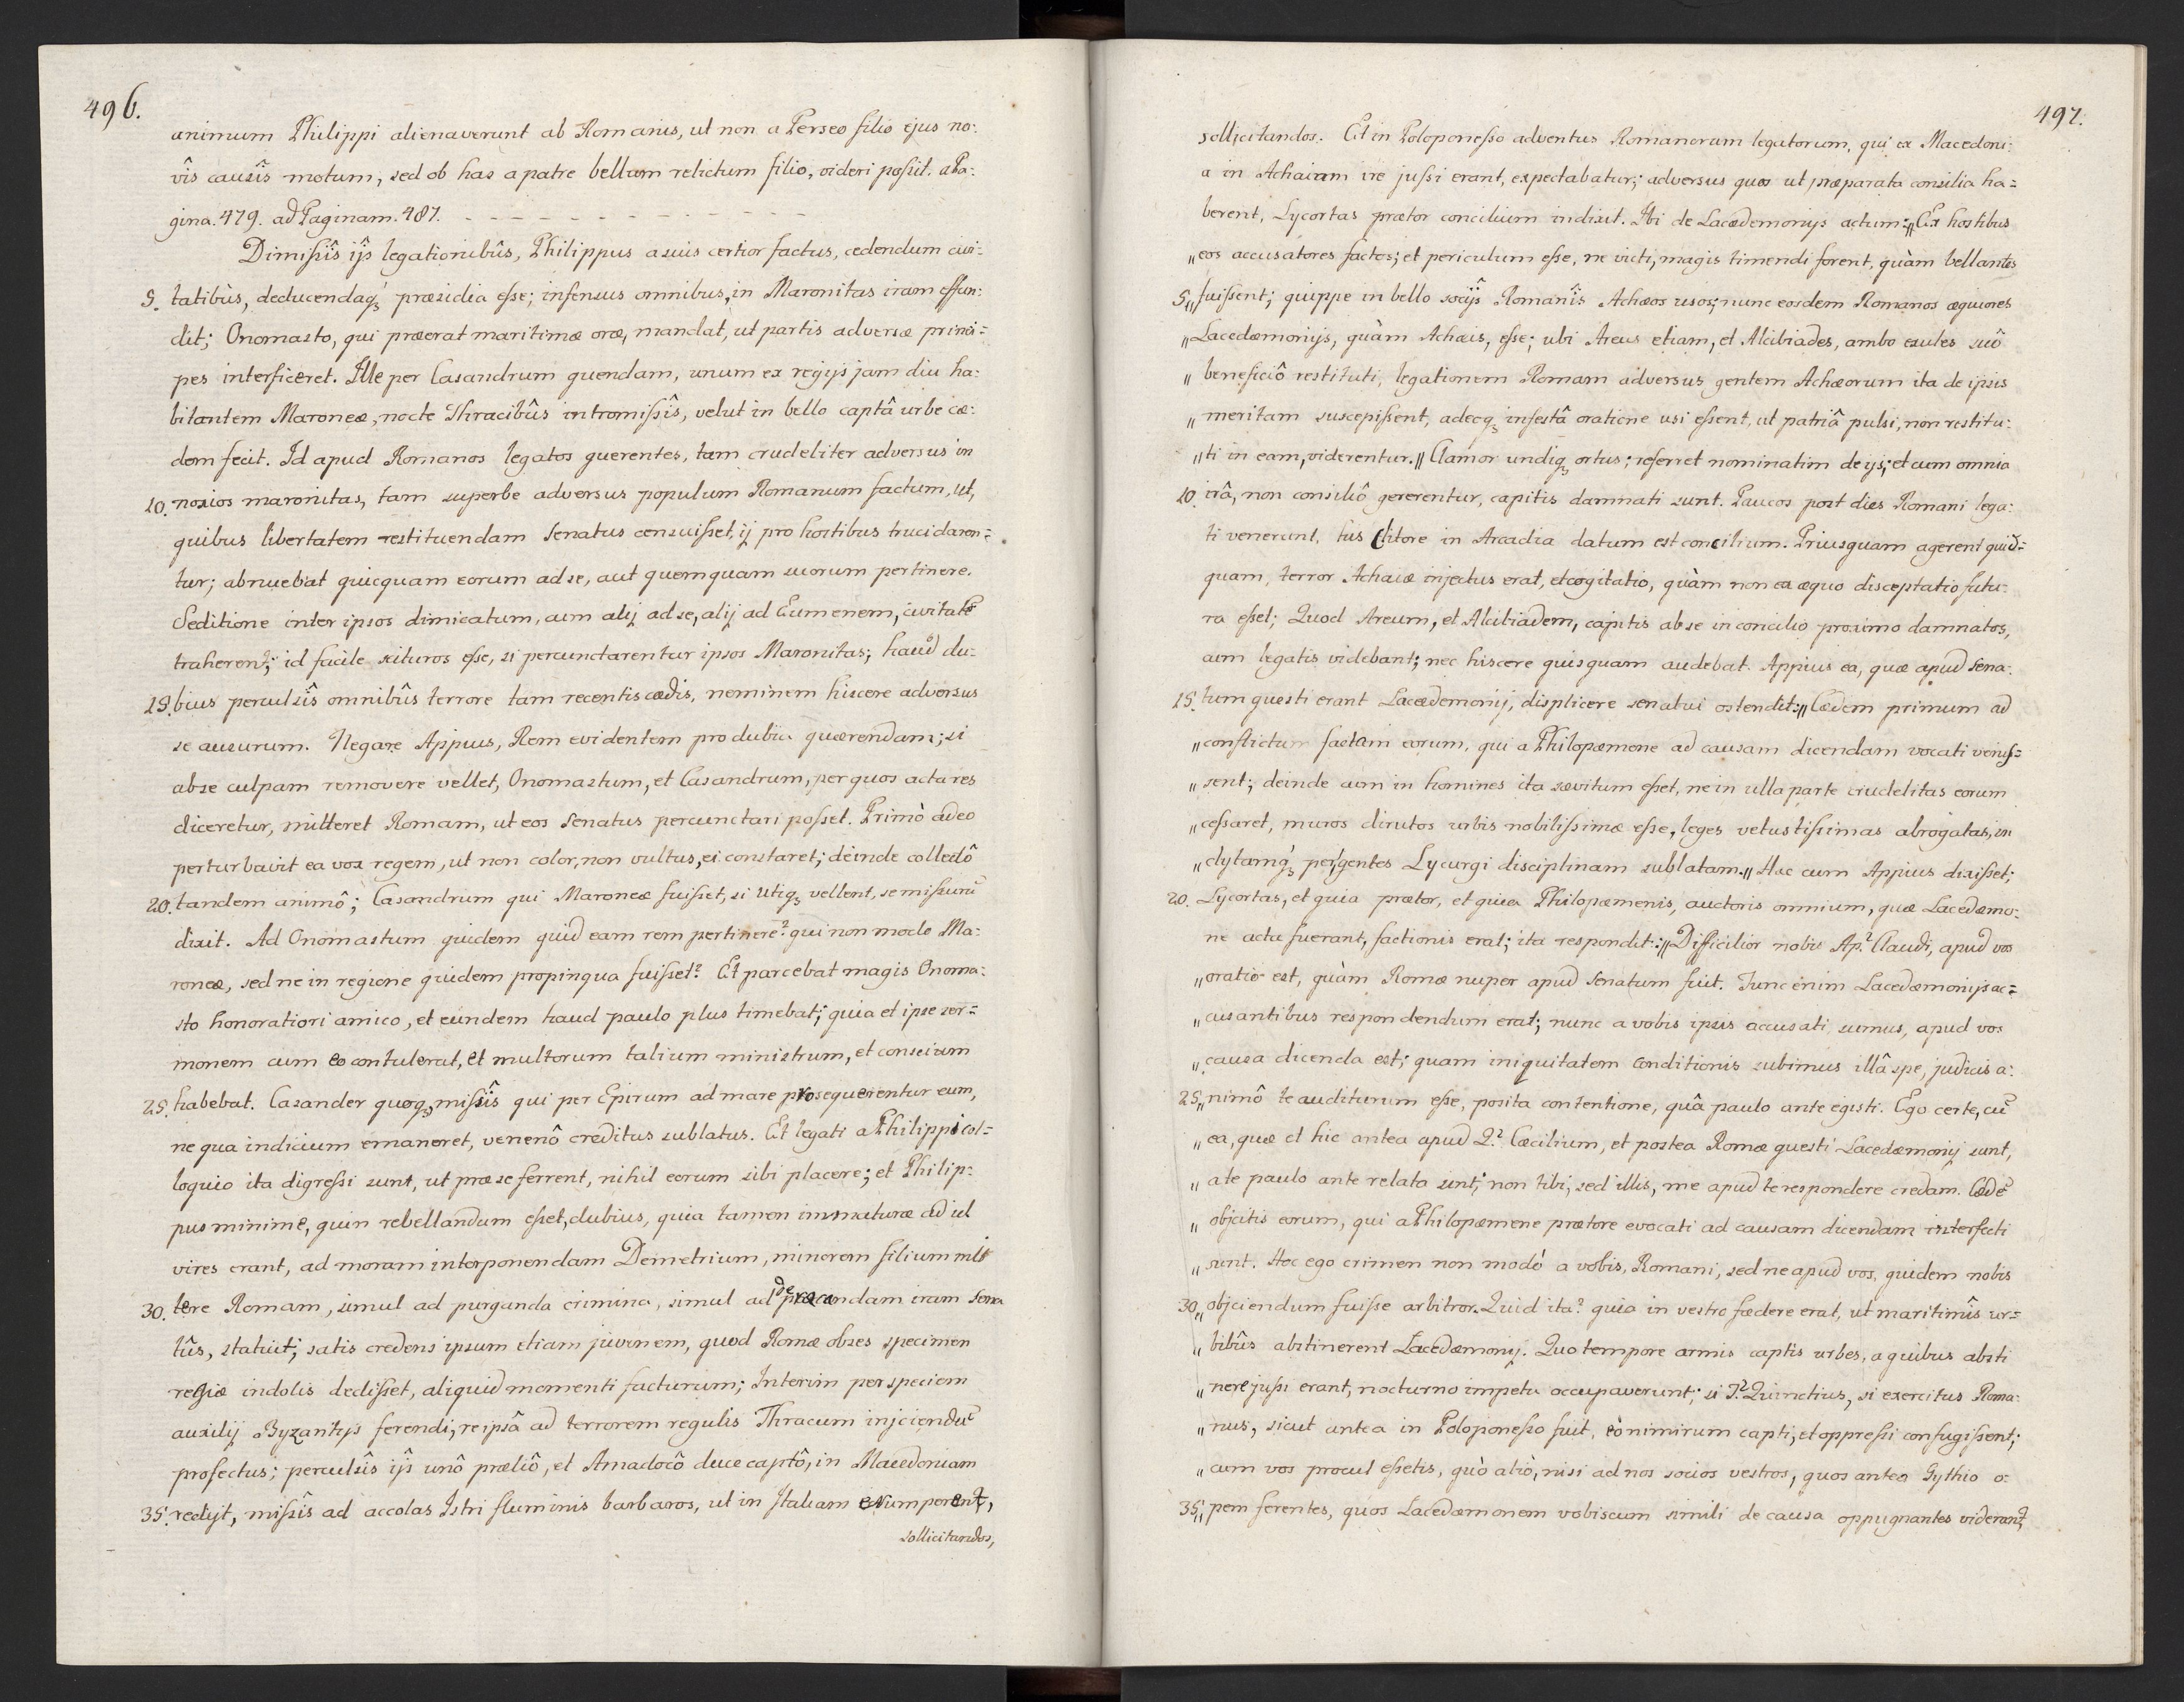 496.
animum Philippi alienaverunt ab Romanis, ut non a Perseo filio ejus no:
vîs causîs motum, sed ob has a patre bellum relictum filio, videri possit. a Pa:
gina. 479. ad Paginam. 487. - - - - - - - - - - - - -
Dimissîs ijs legationibûs, Philippus a suis certior factus, cedendum civi:
5. tatibus, deducendaq₃ præsidia esse; infensus omnibus, in Maronitas iram effun:
dit; Onomasto, qui præerat maritimæ oræ, mandat, ut partis adversæ princi:
pes interficeret. Ille per Casandrum quendam, unum ex regijs jam diu ha:
bitantem Maroneæ, nocte Thracibûs intromissîs, velut in bello captâ urbe cæ:
dem fecit. Id apud Romanos legatos querentes, tam crudeliter adversus in
10. noxios maronitas, tam superbe adversus populum Romanum factum, ut,
quibus libertatem restituendam Senatus censuisset, ij pro hostibus trucidaren:
tur; abnuebat quicquam eorum ad se, aut quemquam suorum pertinere.
Seditione inter ipsos dimicatum, cum alij ad se, alij ad Eumenem, civitatē
traherent; id facile scituros esse, si percunctarentur ipsos Maronitas; haud du:
15. bius perculsîs omnibûs terrore tam recentis cædis, neminem hiscere adversus
se ausurum. Negare Appius, Rem evidentem pro dubia quærendam; si
ab se culpam removere vellet, Onomastum, et Casandrum, per quos acta res
diceretur, mitteret Romam, ut eos Senatus percunctari posset. Primò adeo
perturbavit ea vox regem, ut non color, non vultus, ei constaret; deinde collectô
20. tandem animô; Casandrum qui Maroneæ fuisset, si utiq₃ vellent, se missurū
dixit. Ad Onomastum quidem quid eam rem pertinere? qui non modo Ma:
roneæ, sed ne in regione quidem propinqua fuisset? Et parcebat magis Onoma:
sto honoratiori amico, et eundem haud paulo plus timebat; quia et ipse ser:
monem cum eo contulerat, et multorum talium ministrum, et conscium
25. habebat. Casander quoq₃, missîs qui per Epirum ad mare prosequerentur eum,
ne qua indicium emaneret, venenô creditus sublatus. Et legati a Philippi col:
loquio ita digressi sunt, ut præ se ferrent, nihil eorum sibi placere; et Philip:
pus minimè, quin rebellandum esset, dubius, quia tamen immaturæ ad id
vires erant, ad moram interponendam Demetrium, minorem filium mit
30. tere Romam, simul ad purganda crimina, simul ad deprecandam iram Sena
tûs, statuit; satis credens ipsum etiam juvenem, quod Romæ obses specimen
regiæ indolis dedisset, aliquid momenti facturum; Interim per speciem
auxilij Byzantijs ferendi, re ipsâ ad terrorem regulis Thracum injiciendū
profectus; perculsîs ijs unô præliô, et Amadocô duce captô, in Macedoniam
35. redijt, missîs ad accolas Istri fluminis barbaros, ut in Italiam erumperent,
sollicitandos,
497.
sollicitandos. Et in Poloponesso adventus Romanorum legatorum, qui ex Macedoni:
a in Achaiam ire jussi erant, expectabatur; adversus quos ut præparata consilia ha:
berent, Lycortas prætor concilium indixit. Ibi de Lacædemonijs actum: „Ex hostibus
„eos accusatores factos; et periculum esse, ne victi, magis timendi forent, quàm bellantes
5. „fuissent; quippe in bello socijs Romanîs Achæos usos; nunc eosdem Romanos æquiores
„Lacedæmonijs, quàm Achæis, esse; ubi Areus etiam, et Alcibiades, ambo exules suô
„beneficiô restituti, legationem Romam adversus gentem Achæorum ita de ipsis
„meritam suscepissent, adeoq₃ infestâ oratione usi essent, ut patriâ pulsi, non restitu:
„ti in eam, viderentur.„ Clamor undiq₃ ortus; referret nominatim de ijs; et cum omnia
10. irâ, non consiliô gererentur, capitis damnati sunt. Paucos post dies Romani lega:
ti venerunt, his Clitore in Arcadia datum est concilium. Priusquam agerent quid:
quam, terror Achæis injectus erat, et cogitatio, quàm non ex æquo disceptatio futu:
ra esset; Quod Areum, et Alcibiadem, capitis ab se in concilio proximo damnatos,
cum legatis videbant; nec hiscere quisquam audebat. Appius ea, quæ apud Sena:
15. tum questi erant Lacædemonij, displicere senatui ostendit: „Cædem primum ad
„conflictum factam eorum, qui a Philopæmene ad causam dicendam vocati venis:
„sent; deinde cum in homines ita sævitum esset, ne in ulla parte crudelitas eorum
„cessaret, muros dirutos urbis nobilissimæ esse, leges vetustissimas abrogatas, in
„clytamq₃ per gentes Lycurgi disciplinam sublatam.„ Hæc cum Appius dixisset;
20. Lycortas, et quia prætor, et quia Philopæmenis, auctoris omnium, quæ Lacedæmo:
ne acta fuerant, factionis erat; ita respondit: „Difficilior nobis Ap.? Claudi, apud vos
„oratio est, quàm Romæ nuper apud Senatum fuit. Tunc enim Lacedæmonijs ac:
„cusantibus respondendum erat; nunc a vobis ipsis accusati sumus, apud vos
„causa dicenda est; quam iniquitatem conditionis subimus illâ spe, judicis a:
25. „nimô te auditurum esse, posita contentione, quâ paulo ante egisti. Ego certe, cū
„ea, quæ et hic antea apud Q.? Cæcilium, et postea Romæ questi Lacedæmonij sunt,
„a te paulo ante relata sint; non tibi, sed illis, me apud te respondere credam. Cædē
„objcitis eorum, qui a Philopæmene prætore evocati ad causam dicendam interfecti
„sunt. Hoc ego crimen non modò a vobis, Romani, sed ne apud vos, quidem nobis
30. „objciendum fuisse arbitror. Quid ita? quia in vestro fœdere erat, ut maritimîs ur:
„bibûs abstinerent Lacedæmonij. Quo tempore armis captis urbes, a quibus absti
„nere jussi erant, nocturno impetu occupaverunt; si T.? Quinctius, si exercitus Roma:
„nus, sicut antea in Poloponesso fuit, eò nimirum capti, et oppressi confugissent;
„cum vos procul essetis, quò aliò, nisi ad nos socios vestros, quos antea Gythio o:
35. „pem ferentes, quos Lacedæmonem vobiscum simili de causa oppugnantes viderant,